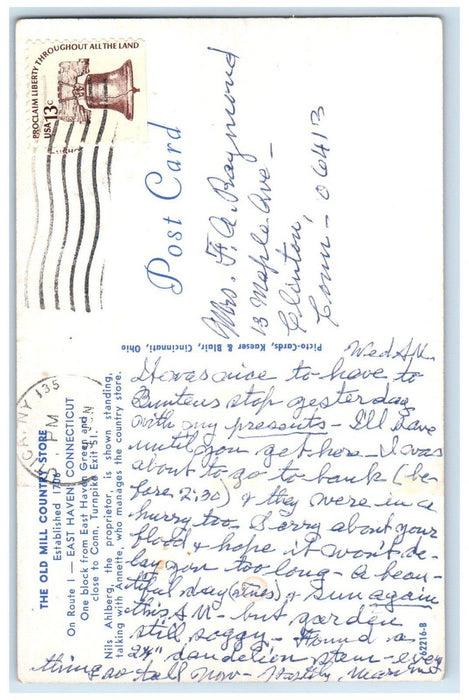 PROCLAIM LIBERTY THROUGHOUT ALL THE LAND
USA 13c
Post Card
Mrs. F. A. Raymond
13 Maple Ave -
Clinton,
Conn - 06413
Picto-Cards, Kaeser & Blair, Cincinnati, Ohio
135
PM
THE OLD MILL COUNTRY STORE
Established
On Route 1 — EAST HAVEN, CONNECTICUT
One block from East Haven Green and
close to Conn. Turnpike Exit 51.
Nils Ahlberg, the proprietor, is shown standing,
talking with Annette, who manages the country store.
62216-B
Wed A.M.
It was nice to have to
stop yesterday
with my presents - I'll save
until you get here - I was
about to go to bank (be-
fore 2:30) & they were in a
hurry too - Sorry about your
flood & hope it won't de-
lay you too long - A beau-
tiful day & sun again
this AM - but garden
still soggy - Found a
24" dandelion stem - every
thing so tall now - Hastily,